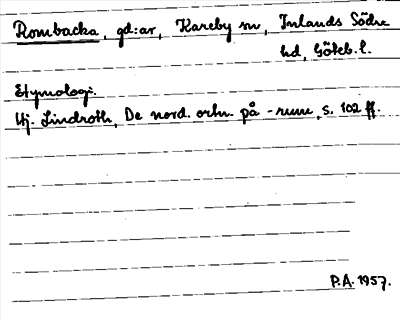 Rombacka, gd:ar, Kareby sn, Inlands Södre
hd, Göteb. l.
Etymologi:
Hj. Lindroth, De nord. ortn. på -rum, s. 102 ff.
P.A. 1957.